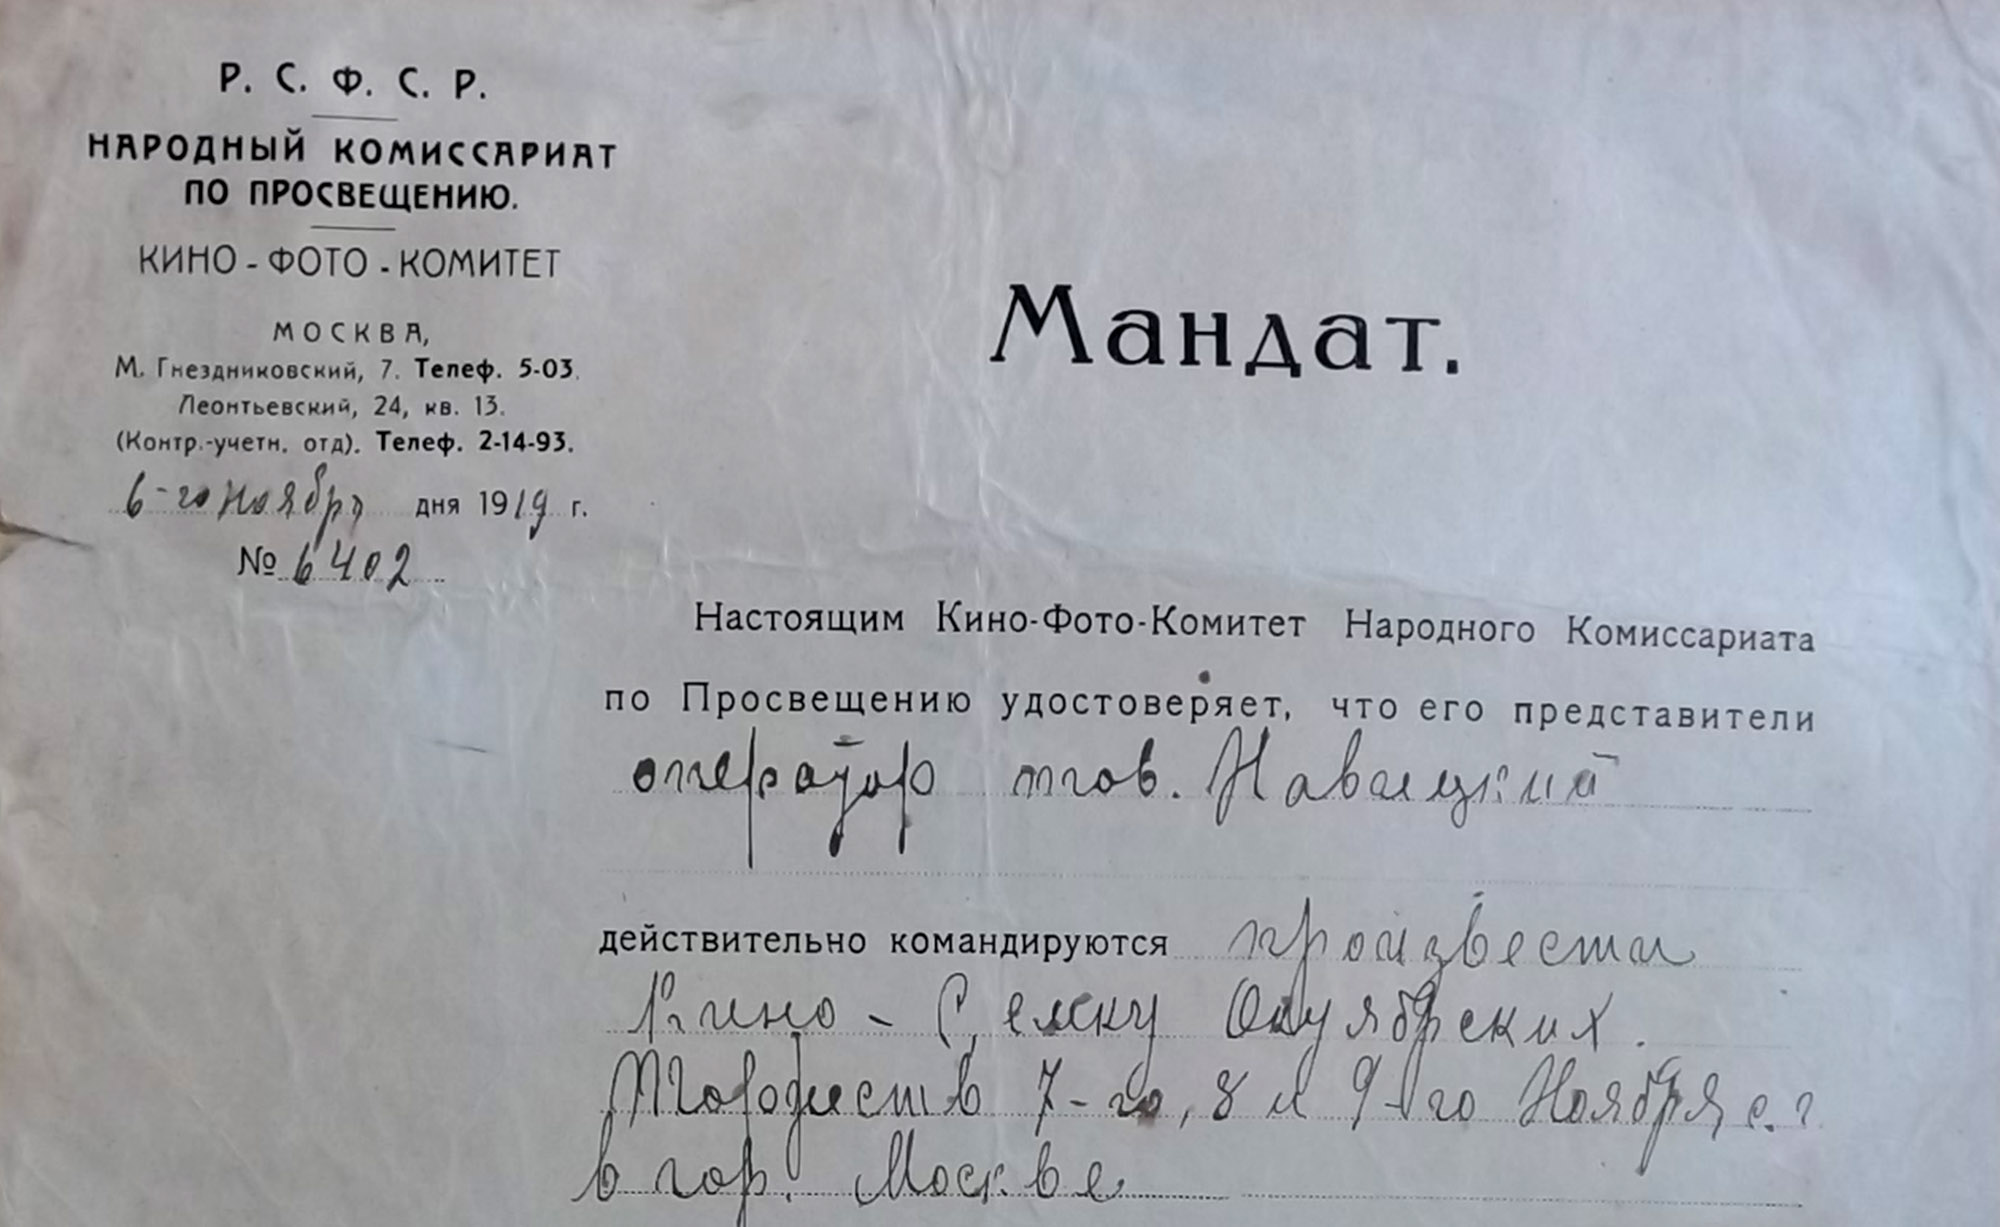 Р. С. Ф. С. Р.
НАРОДНЫЙ КОМИССАРИАТ
ПО ПРОСВЕЩЕНИЮ.
КИНО-ФОТО-КОМИТЕТ
МОСКВА,
М. Гнездниковский, 7. Телеф. 5-03.
Леонтьевский, 24, кв. 13.
(Контр.-учетн. отд). Телеф. 2-14-93.
6-го ноября дня 1919 г.
№ 6402
Мандат.
Настоящим Кино-Фото-Комитет Народного Комиссариата
по Просвещению удостоверяет, что его представители
оператор тов.
действительно командируются произвести
Кино-Семку Октябрских
Торжеств 7-го, 8 и 9-го Ноября с. г
в гор. Москве